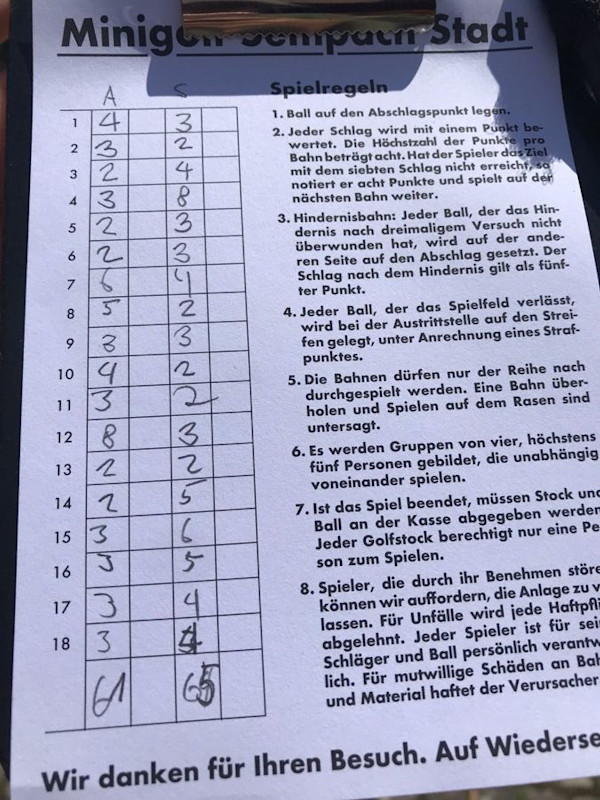 Minigolf Sempach Stadt
A S
1 4 3
2 3 2
3 2 4
4 3 8
5 2 3
6 2 3
7 6 4
8 5 2
9 3 3
10 4 2
11 3 2
12 8 3
13 2 2
14 2 5
15 3 6
16 3 5
17 3 4
18 3 4
61 65
Spielregeln
1. Ball auf den Abschlagspunkt legen.
2. Jeder Schlag wird mit einem Punkt be-
wertet. Die Höchstzahl der Punkte pro
Bahn beträgt acht. Hat der Spieler das Ziel
mit dem siebten Schlag nicht erreicht, so
notiert er acht Punkte und spielt auf der
nächsten Bahn weiter.
3. Hindernisbahn: Jeder Ball, der das Hin-
dernis nach dreimaligem Versuch nicht
überwunden hat, wird auf der ande-
ren Seite auf den Abschlag gesetzt. Der
Schlag nach dem Hindernis gilt als fünf-
ter Punkt.
4. Jeder Ball, der das Spielfeld verlässt,
wird bei der Austrittstelle auf den Strei-
fen gelegt, unter Anrechnung eines Straf-
punktes.
5. Die Bahnen dürfen nur der Reihe nach
durchgespielt werden. Eine Bahn über-
holen und Spielen auf dem Rasen sind
untersagt.
6. Es werden Gruppen von vier, höchstens
fünf Personen gebildet, die unabhängig
voneinander spielen.
7. Ist das Spiel beendet, müssen Stock und
Ball an der Kasse abgegeben werden
Jeder Golfstock berechtigt nur eine Pe
son zum Spielen.
8. Spieler, die durch ihr Benehmen störe
können wir auffordern, die Anlage zu v
lassen. Für Unfälle wird jede Haftpfli
abgelehnt. Jeder Spieler ist für sei
Schläger und Ball persönlich verantw
lich. Für mutwillige Schäden an Bah
und Material haftet der Verursacher
Wir danken für Ihren Besuch. Auf Wiederse